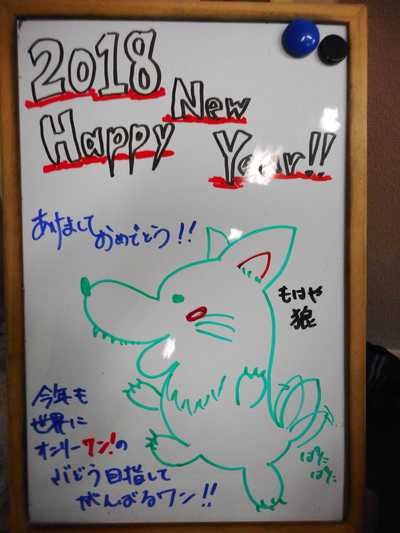 2018
Happy New
Year!!
あけまして
おめでとう!!
もはや
狼
今年も
世界に
オンリーワン!の
ぶどう目指して
がんばるワン!!
ぱた
ぱた